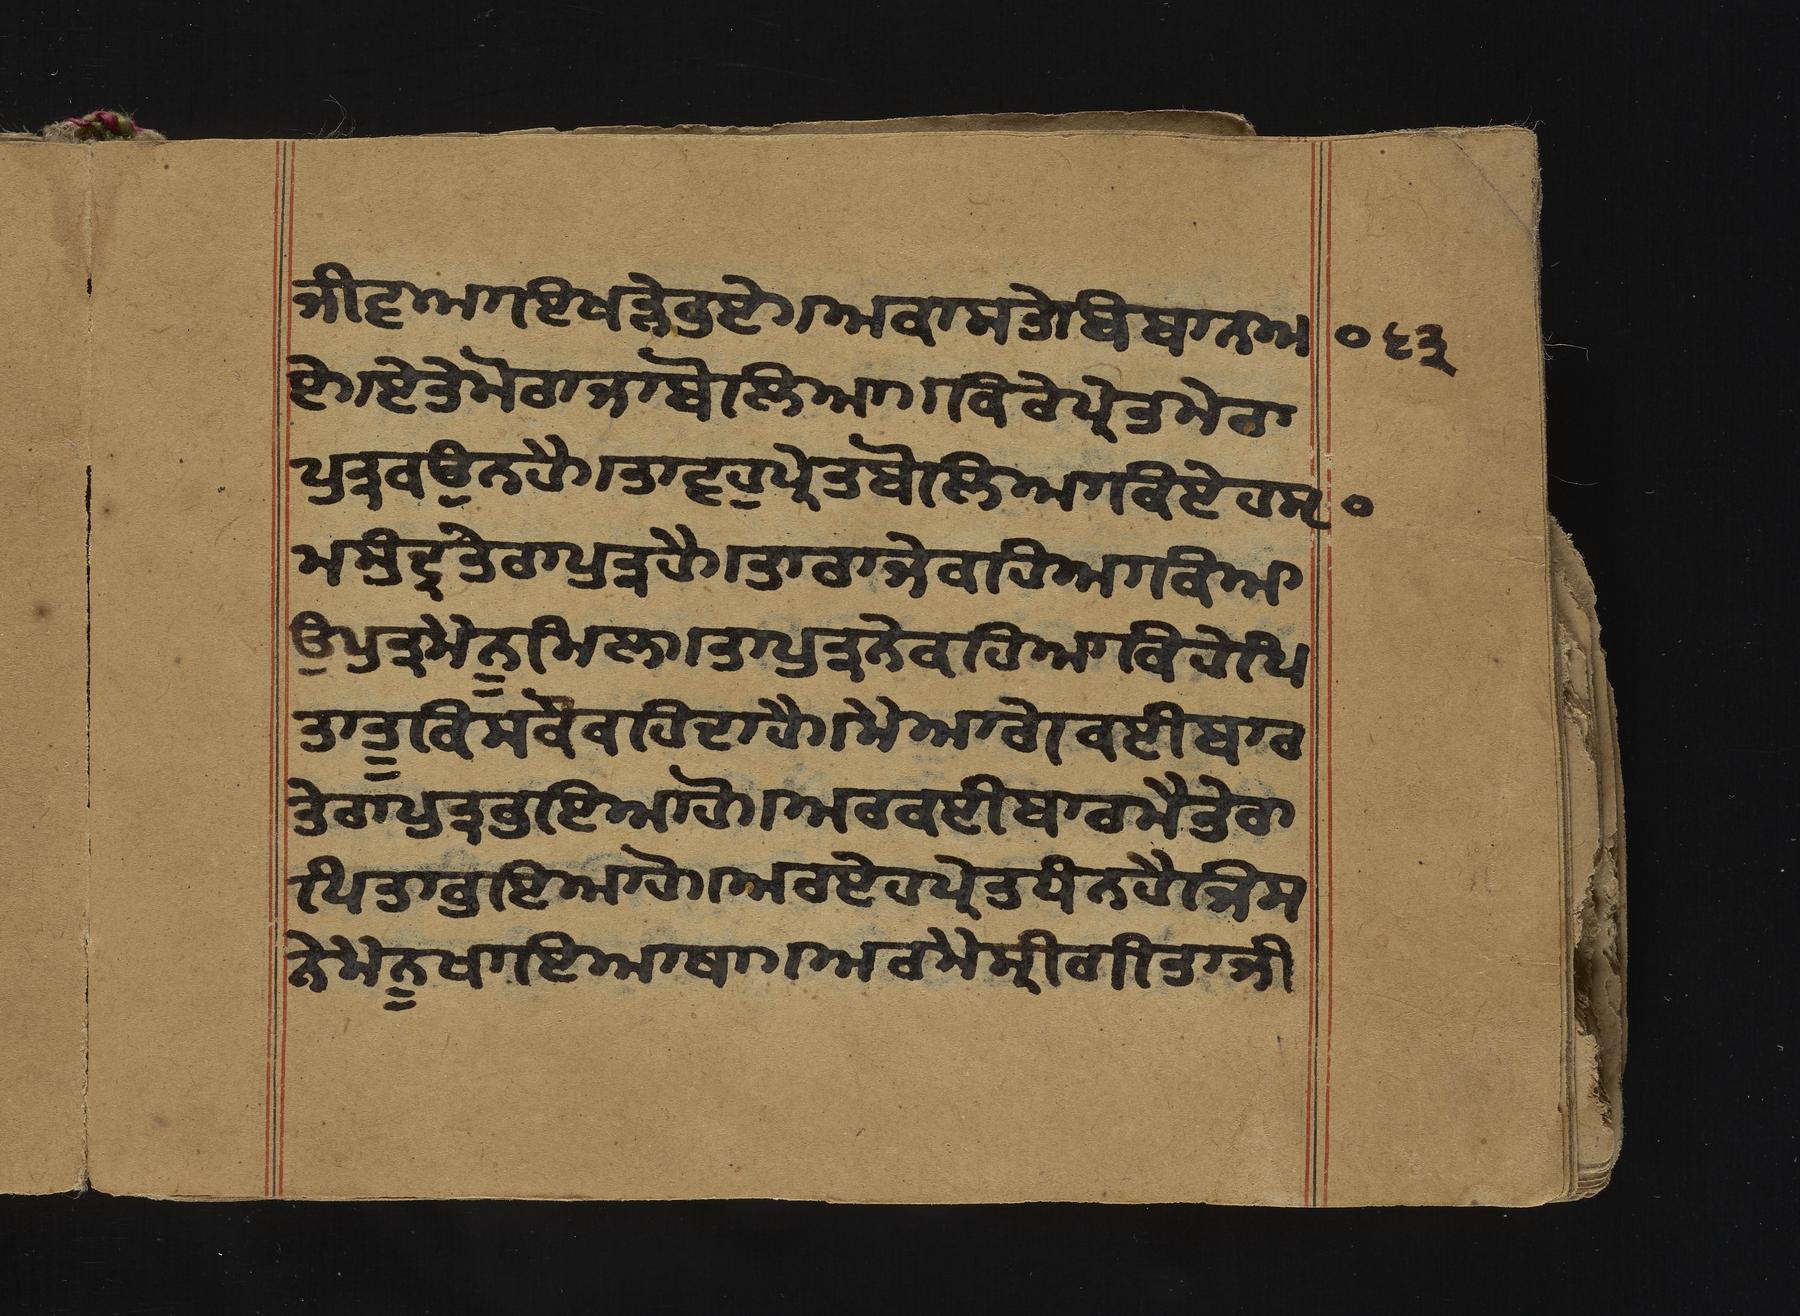 ਜੀਦੁਆਗਇਖੜੇਹੁਏ।ਅਕਾਸਤੇਬਿਬਾਨਅ ੦ ੬੩
ਏ।ਏਤੇਮੋਰਾਜਾਬੋਲਿਆ।ਕਿਰੇਪ੍ਰੇਤਮੇਰਾ
ਪੁਤ੍ਰਕਉਨਹੈ।ਤਾਦੂਹੁਪ੍ਰੇਤਬੋਲਿਆਕਿਏਹਸ੍ ੦
ਮਸੁੰਦ੍ਰਤੇਰਾਪੁਤ੍ਰਹੈ।ਤਾਰਾਜੇਕਹਿਆਕਿਆ
ਉਪੁਤ੍ਰਮੇਨੂਮਿਲ।ਤਾਪੁਤ੍ਰਨੇਕਹਿਆਕਿਹੇਪਿ
ਤਾਤੂਕਿਸਕੋਕਹਿਦਾਹੈ।ਮੇਆਗੇਕਈਬਾਰ
ਤੇਰਾਪੁਤ੍ਰਹੁਇਆਹੋ।ਅਰਕਈਬਾਰਮੈਤੇਰਾ
ਪਿਤਾਹੁਇਆਹੋ।ਅਰਏਹਪ੍ਰੇਤਧੰਨਹੈਜਿਸ
ਨੇਮੇਨੂਖਾਇਆਥਾ।ਅਰਮੇਸ੍ਰੀਗੀਤਾਜੀ